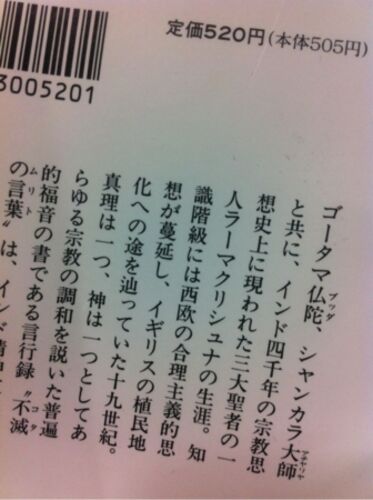 定価520円(本体505円)
3005201
ゴータマ仏陀、シャンカラ大師
ブッダ
アチャリヤ
と共に、インド四千年の宗教思
想史上に現われた三大聖者の一
人ラーマクリシュナの生涯。知
識階級には西欧の合理主義的思
想が蔓延し、イギリスの植民地
化への途を辿っていた十九世紀。
真理は一つ、神は一つとしてあ
らゆる宗教の調和を説いた普遍
的福音の書である言行録〝不滅
コタ
の言葉〟は、インド精
ムリト